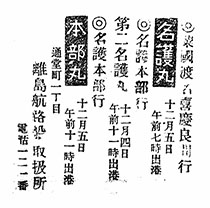 ◎渡國渡名喜慶良間行
名護丸
十二月五日
午前七時出港
◎名護本部行
第二名護丸
十二月四日
午前十一時出港
◎名護本部行
本部丸
十二月五日
午前十一時出港
通堂町二丁目
離島航路船取扱所
電話一二一番